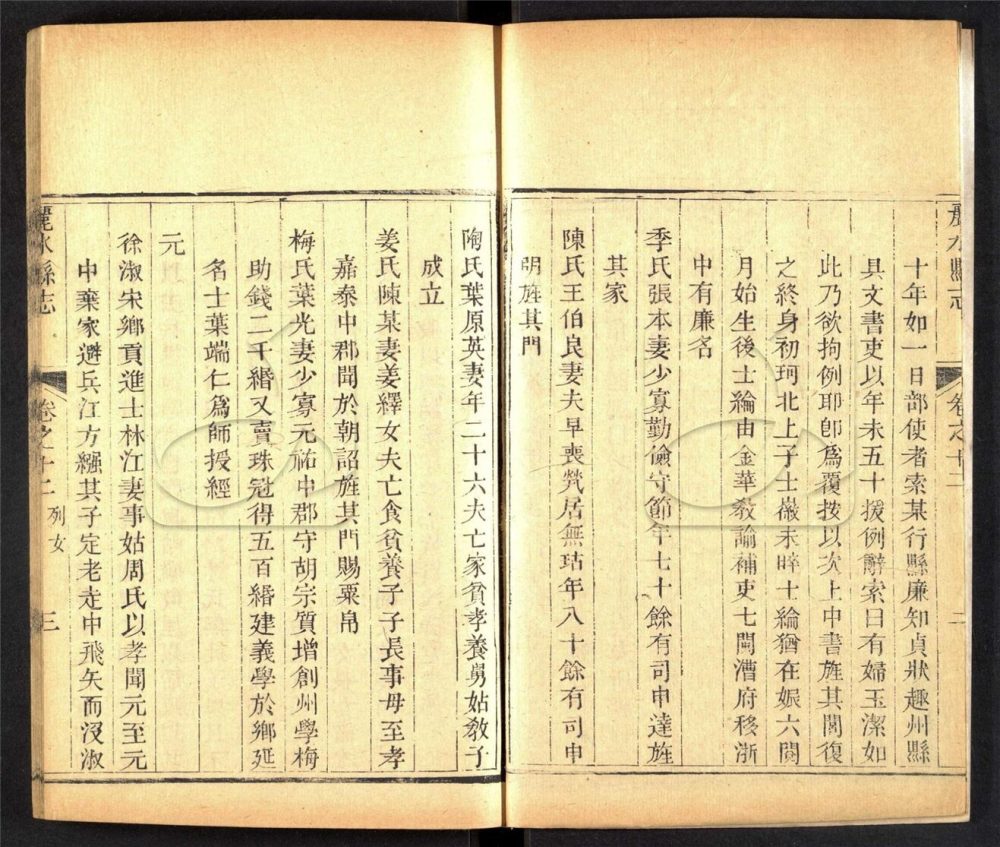 麗水縣志
卷之十二
二
十年如一日部使者索某行縣廉知貞狀趣州縣
具文書吏以年未五十援例辭索曰有婦玉潔如
此乃欲拘例耶卽爲覆按以次上中書旌其閭復
之終身初珂北上子士嶽未晬士綸猶在娠六閱
月始生後士綸由金華敎諭補吏七閩漕府移浙
中有廉名
季氏張本妻少寡勤儉守節年七十餘有司申達旌
其家
陳氏王伯良妻夫早喪煢居無玷年八十餘有司申
明旌其門
陶氏葉原英妻年二十六夫亡家貧孝養舅姑敎子
成立
姜氏陳某妻姜繹女夫亡食貧養子子長事母至孝
嘉泰中郡聞於朝詔旌其門賜粟帛
梅氏葉光妻少寡元祐中郡守胡宗質增創州學梅
助錢二千緡又賣珠冠得五百緡建義學於鄉延
名士葉端仁爲師授經
元
徐淑宋鄉貢進士林江妻事姑周氏以孝聞元至元
中棄家避兵江方繦其子定老走中飛矢而沒淑
麗水縣志
卷之十二 列女
三